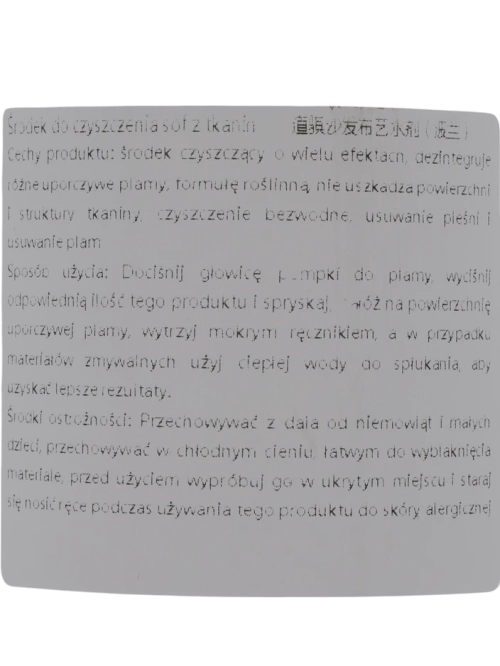 Środek do czyszczenia sof z tkanin 沙发布艺 剂（波兰）
Cechy produktu: środek czyszczący o wielu efektach, dezintegruje
różne uporczywe plamy, formułę roślinną, nie uszkadza powierzchni
i struktury tkaniny, czyszczenie bezwodne, usuwanie pleśni i
usuwanie plam
Sposób użycia: Dociśnij głowicę pompki do plamy, wyciśnij
odpowiednią ilość tego produktu i spryskaj, na powierzchnię
uporczywej plamy, wytrzyj mokrym ręcznikiem, a w przypadku
materiałów zmywalnych użyj ciepłej wody do spłukania, aby
uzyskać lepsze rezultaty.
Środki ostrożności: Przechowywać z dala od niemowląt i małych
dzieci, przechowywać w chłodnym cieniu, łatwym do wyblaknięcia
materiałe, przed użyciem wypróbuj go w ukrytym miejscu i staraj
się nosić ręce podczas używania tego produktu do skóry alergicznej